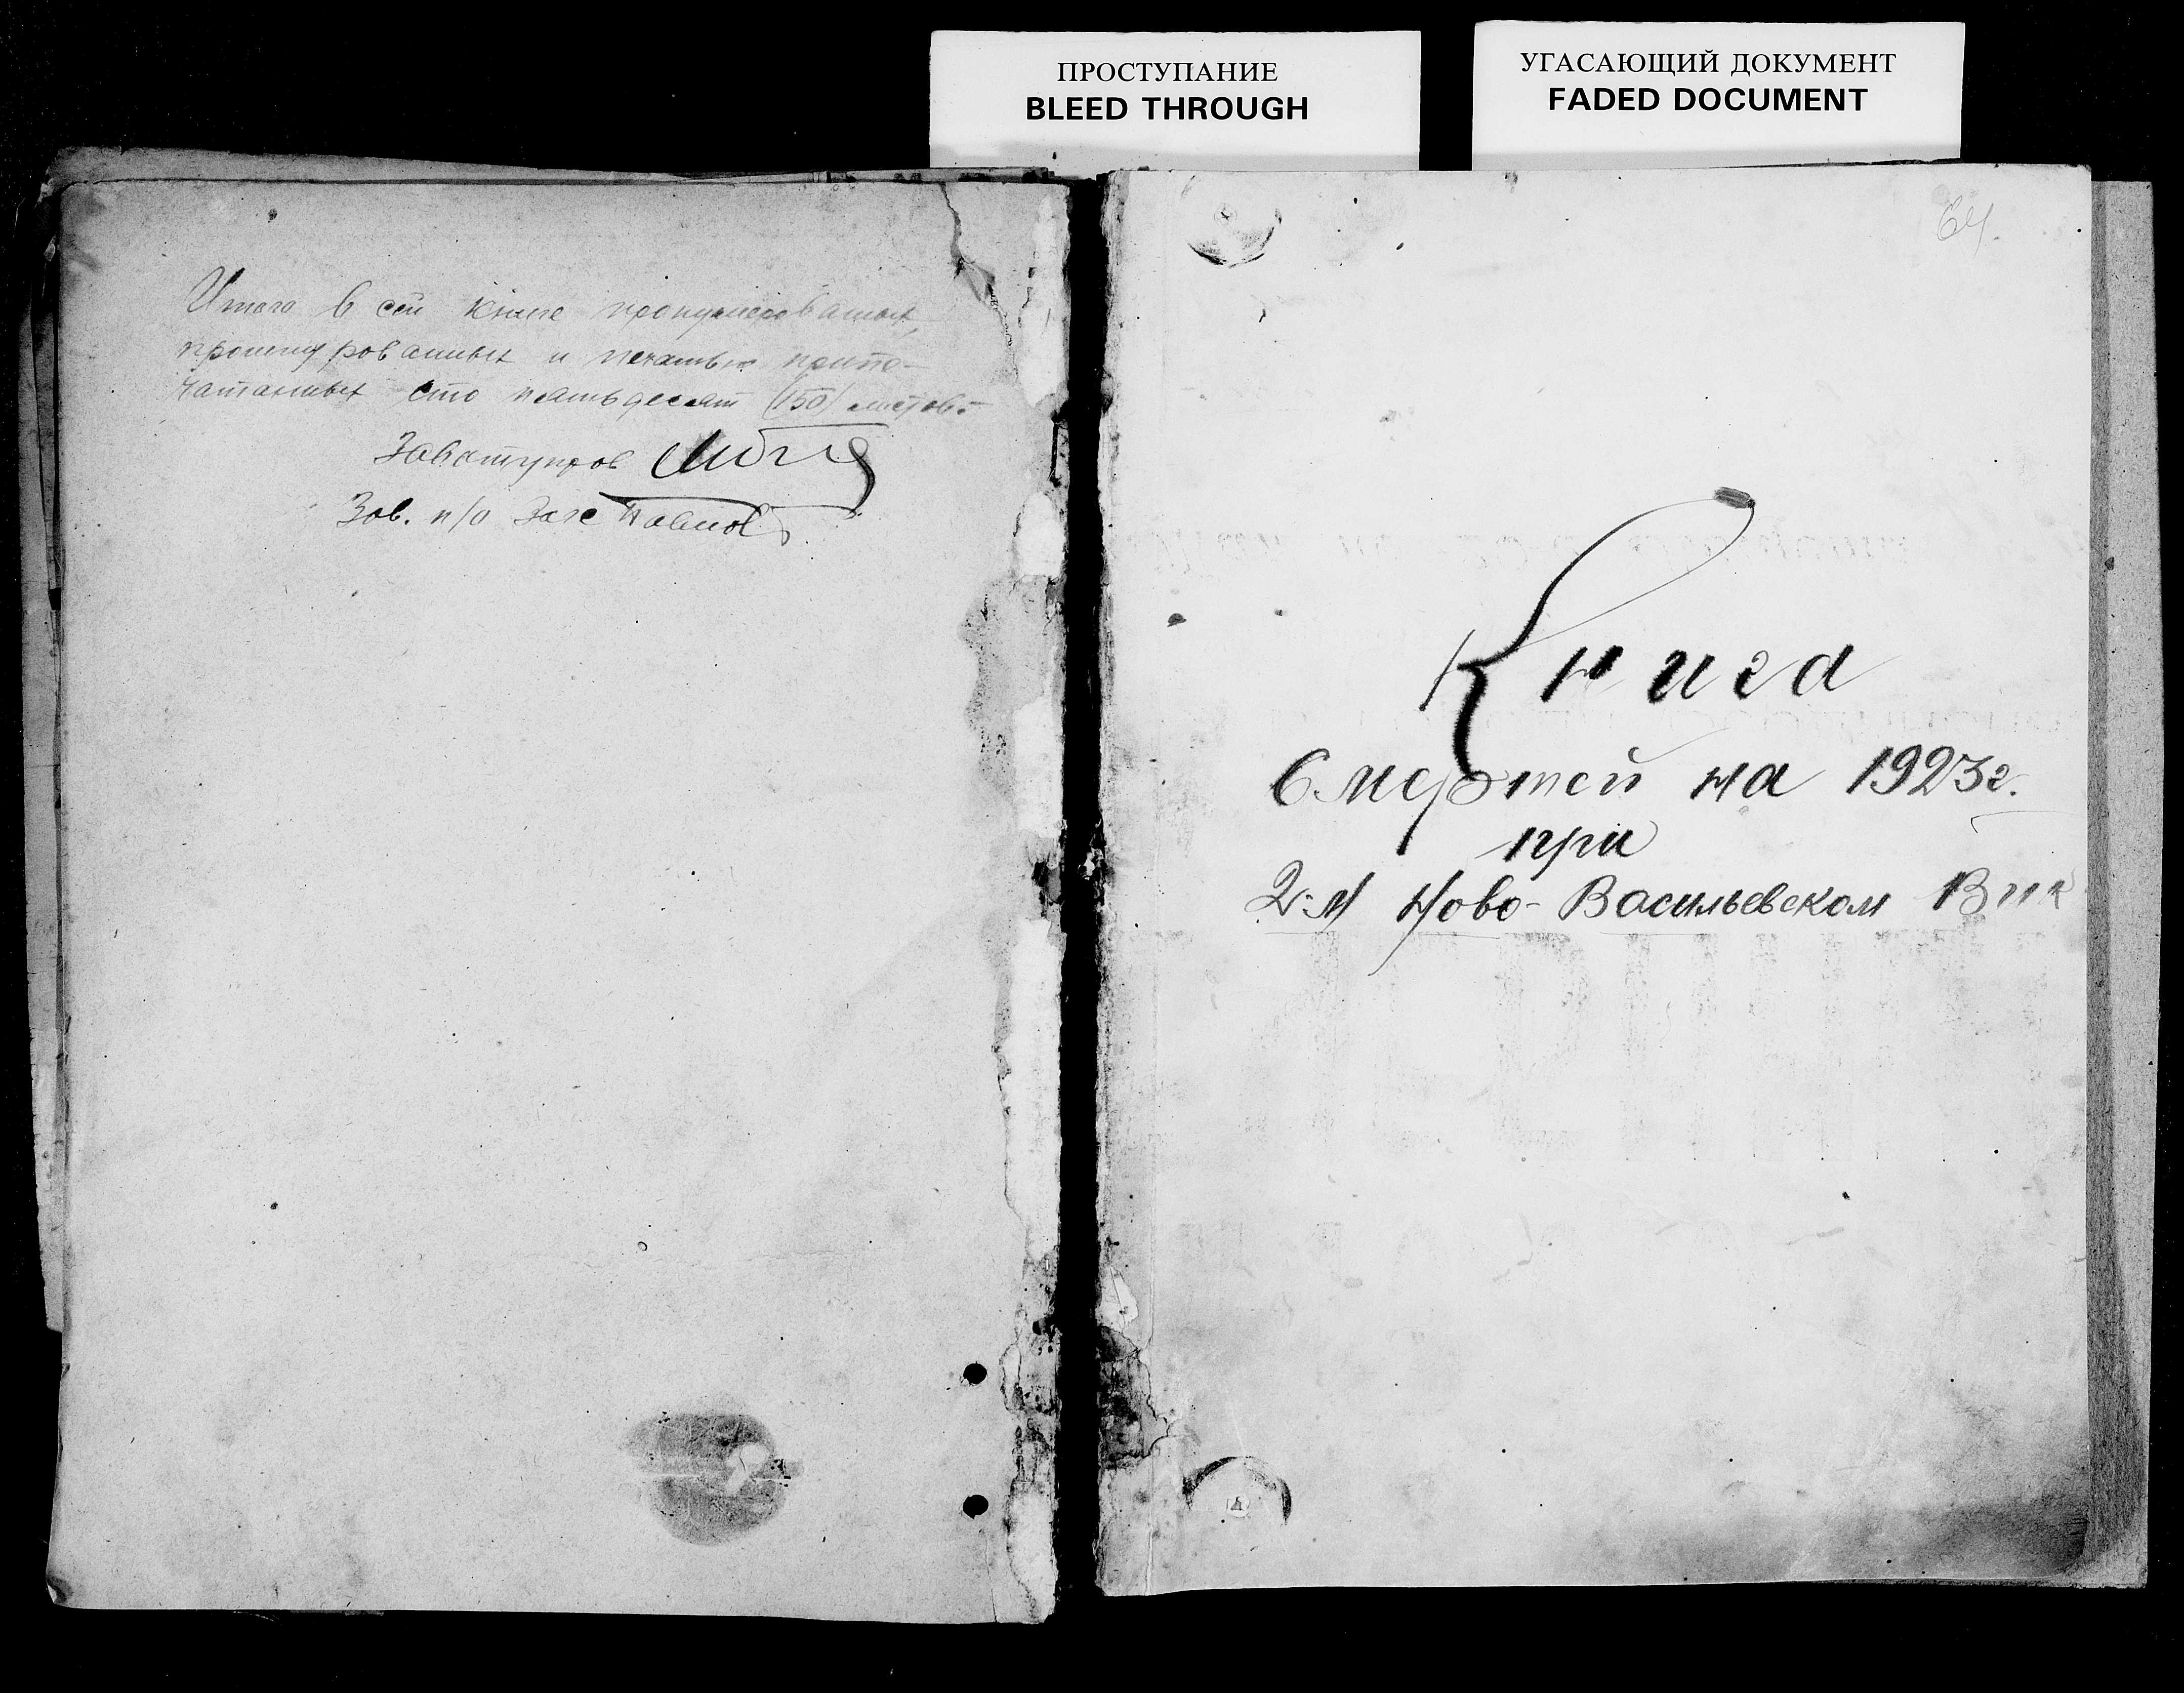 ПРОСТУПАНИЕ
BLEED THROUGH
УГАСАЮЩИЙ ДОКУМЕНТ
FADED DOCUMENT
Итого в сей книге пронумерованых,
прошнурованных и печатью припе-
чатанных сто пятьдесят (150) листов.
Зав. п/о Загс Павлов
64.
Книга
Смертей на 1923 г.
при
2-м Ново-Васильевском Вик